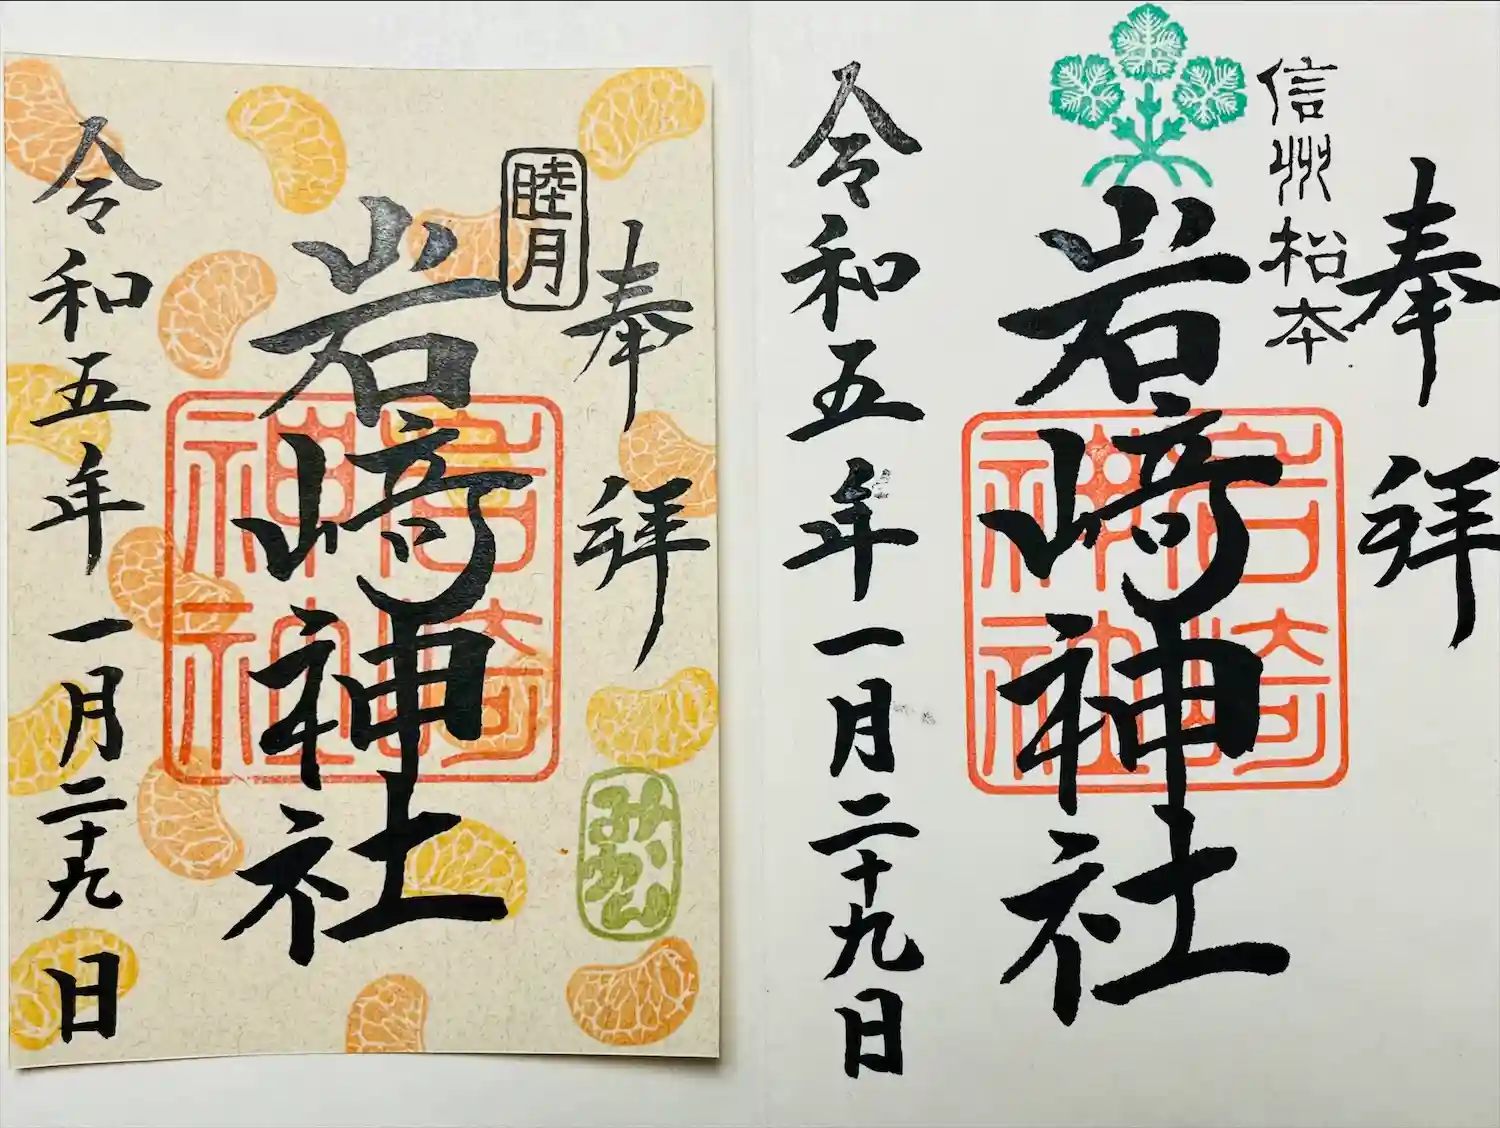 奉拝
睦月
岩﨑神社
岩崎神社
みかん
令和五年一月二十九日
奉拝
信州松本
岩﨑神社
岩崎神社
令和五年一月二十九日